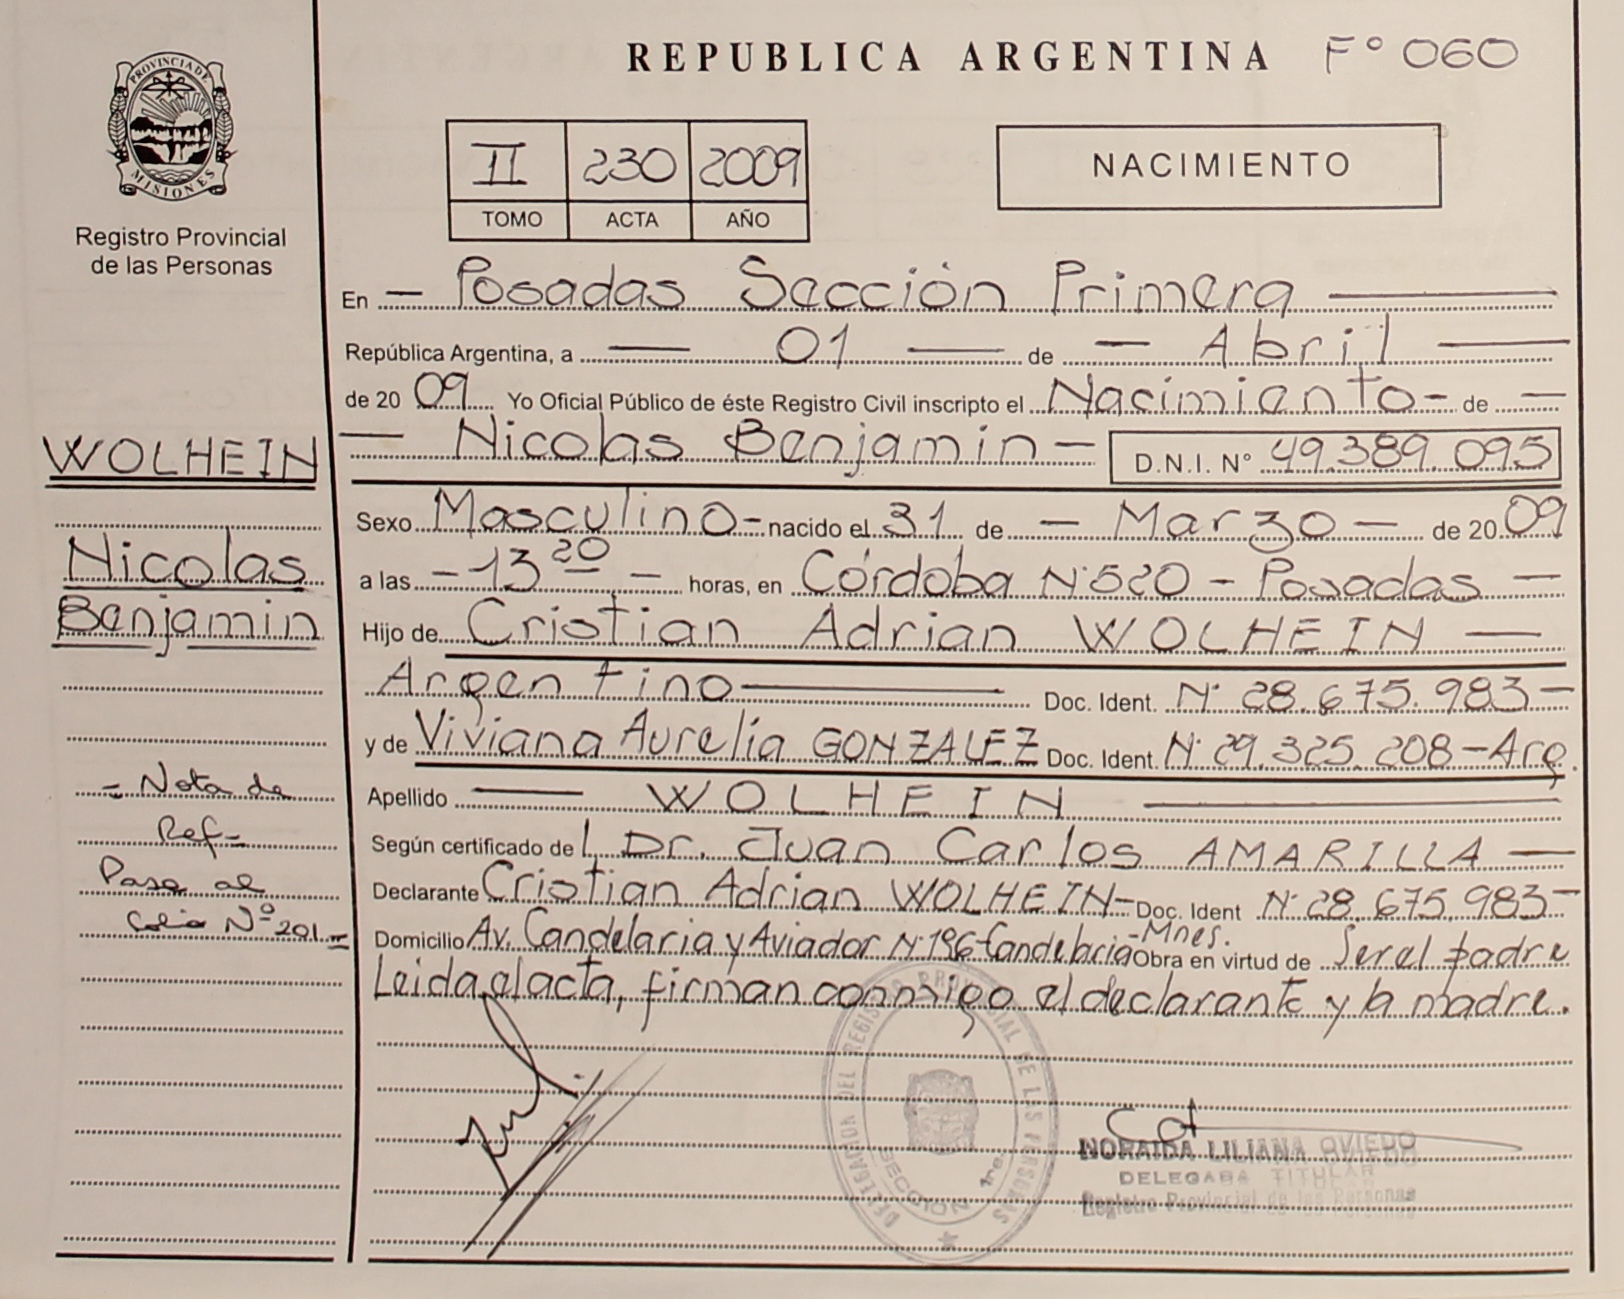 REPUBLICA ARGENTINA F° 060
PROVINCIA DE
MISIONES
Registro Provincial
de las Personas
II 230 2009
TOMO ACTA AÑO
NACIMIENTO
En — Posadas Sección Primera —
República Argentina, a — 01 — de — Abril —
de 20 09 Yo Oficial Público de éste Registro Civil inscripto el Nacimiento - de —
— Nicolas Benjamin — D.N.I. N° 49.389.095
Sexo Masculino - nacido el 31 de — Marzo — de 20 09
a las - 13 20 — horas, en Córdoba N° 520 - Posadas —
Hijo de Cristian Adrian WOLHEIN —
Argentino — Doc. Ident. N° 28.675.983 —
y de Viviana Aurelia GONZALEZ Doc. Ident. N° 29.325.208 - Arg.
Apellido — WOLHEIN —
Según certificado del Dr. Juan Carlos AMARILLA —
Declarante Cristian Adrian WOLHEIN - Doc. Ident N° 28.675.983 —
Domicilio Av. Candelaria y Aviador N° 196 Candelaria - Mnes. Obra en virtud de Ser el padre
Leida el acta, firman conmigo el declarante y la madre.
WOLHEIN
Nicolas
Benjamin
- Nota de
Ref -
Pasa al
folio N° 201 II
DELEGACION DEL REGISTRO PROVINCIAL DE LAS PERSONAS
SECCION 1ra.
NORAIDA LILIANA OVIEDO
DELEGADA TITULAR
Registro Provincial de las Personas